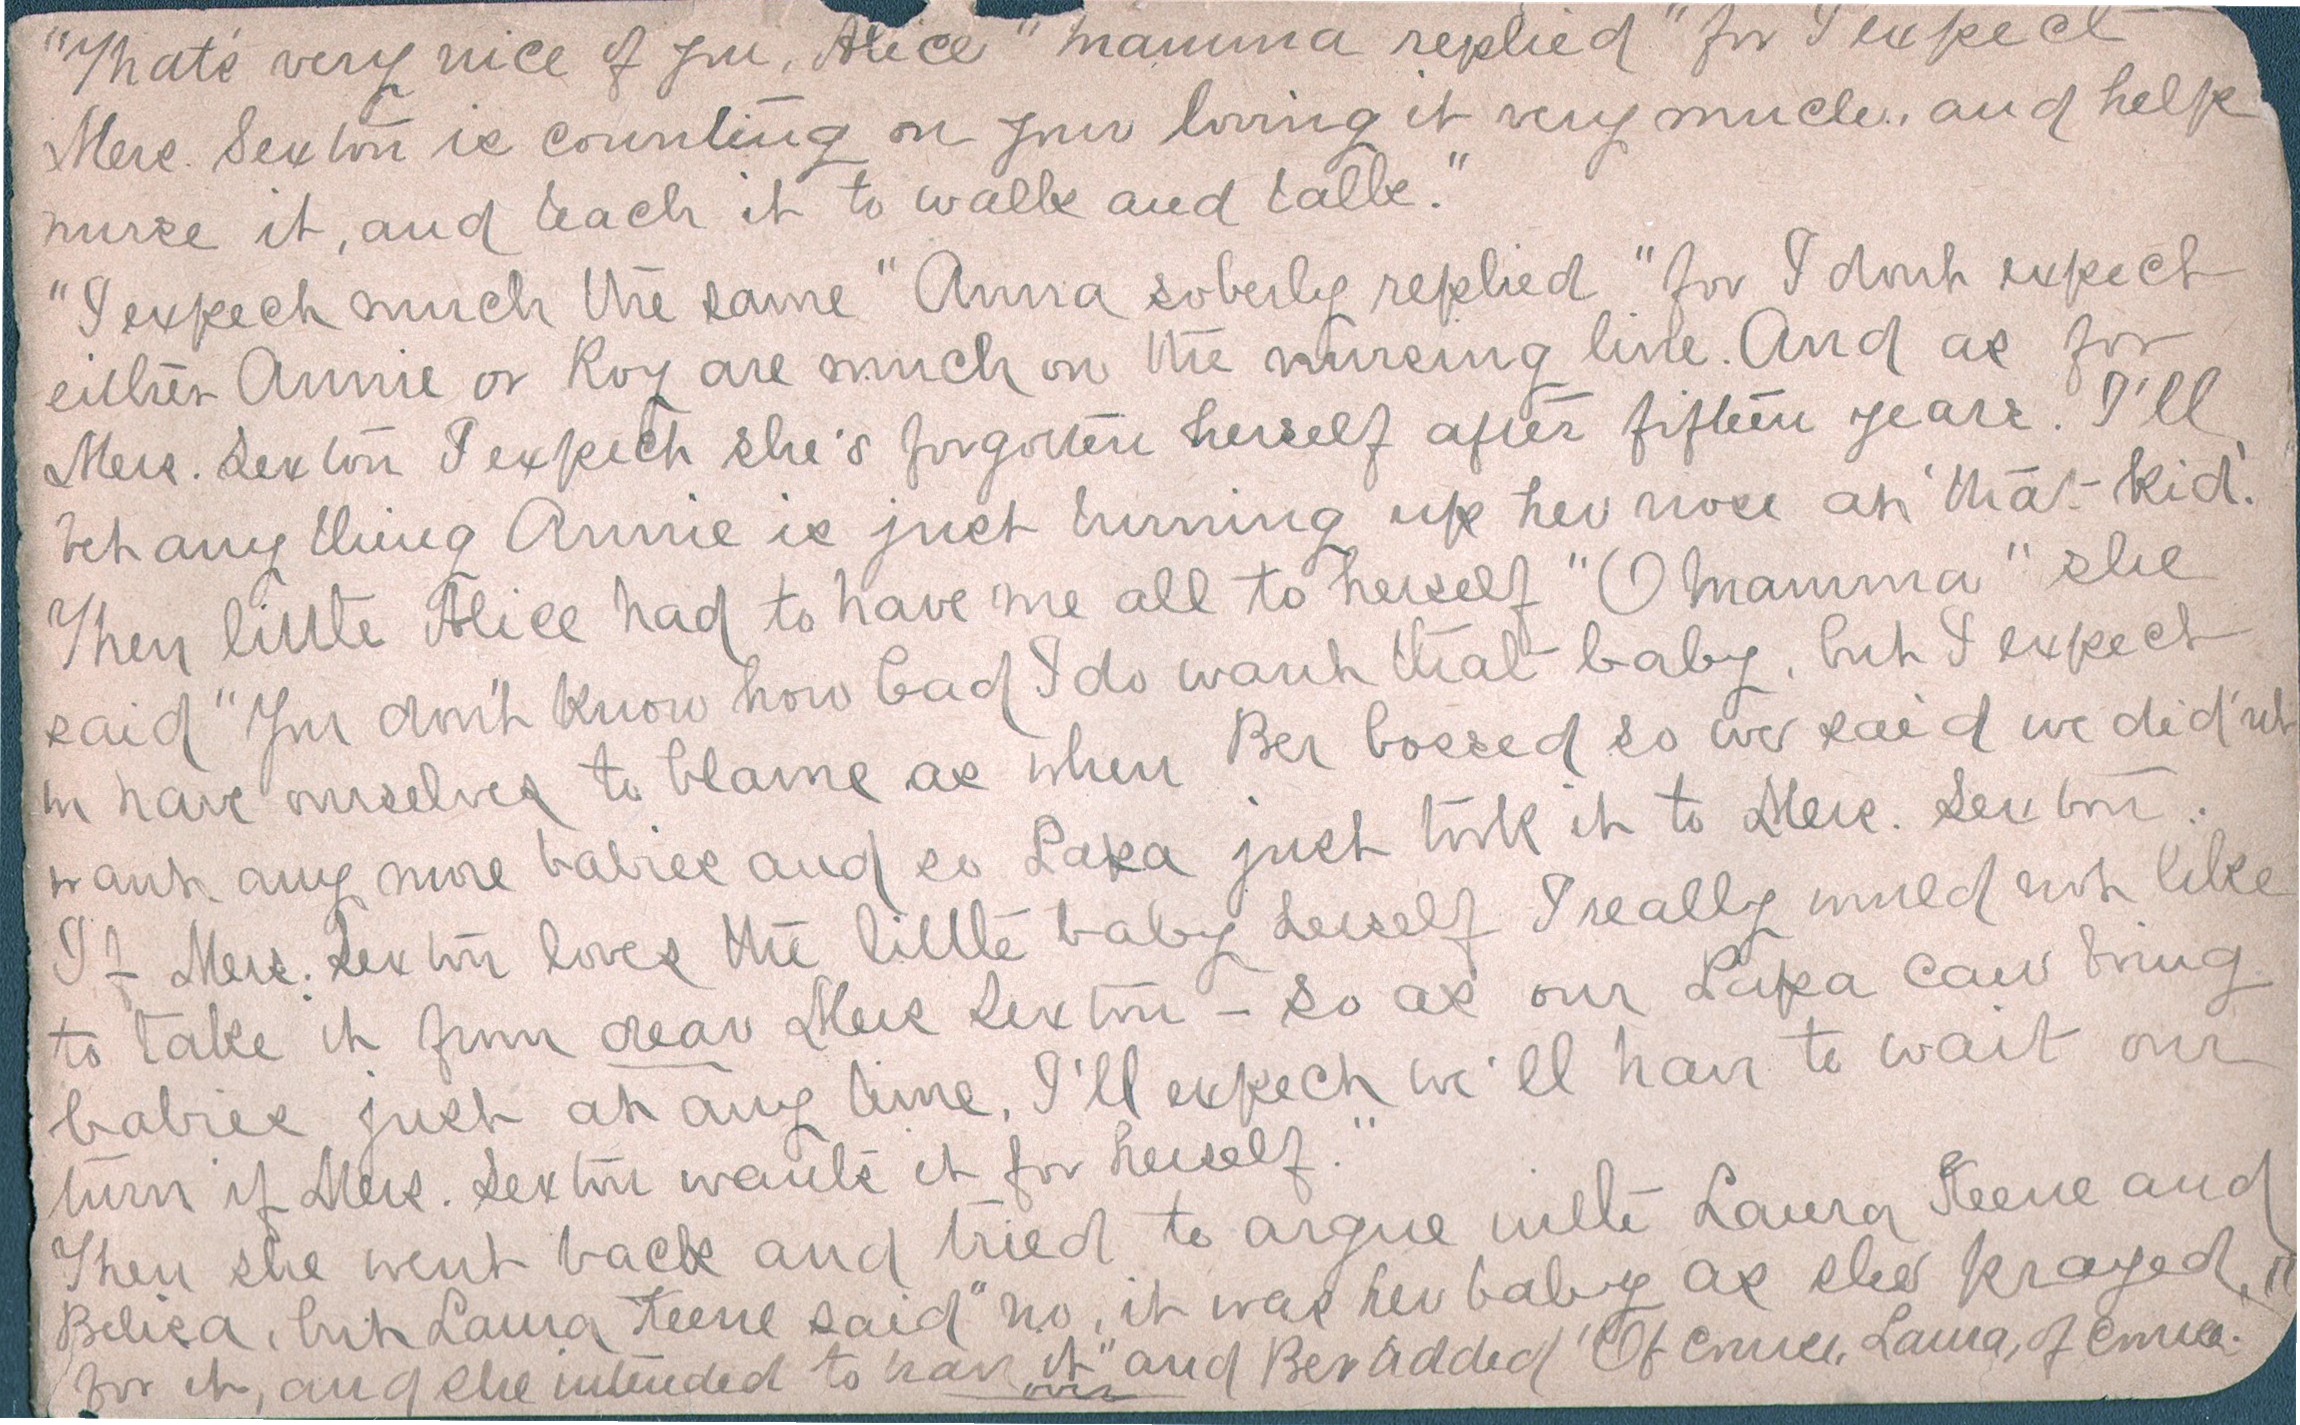 "That's very nice of you, Alice" mamma replied "for I expect
Mrs. Sexton is counting on your loving it very much, and help
nurse it, and teach it to walk and talk."
"I expect much the same" Anna soberly replied "for I dont expect
either Annie or Roy are much on the nursing line. And as for
Mrs. Sexton I expect she's forgotten herself after fifteen years. I'll
bet any thing Annie is just turning up her nose at 'that kid'."
Then little Alice had to have me all to herself "O mamma" she
said "You don't know how bad I do want that baby, but I expect
we have ourselves to blame as when Ber bossed so we said we did'nt
want any more babies and so Papa just took it to Mrs. Sexton.
If Mrs. Sexton loves the little baby herself I really would not like
to take it from dear Mrs Sexton - so as our Papa can bring
babies just at any time, I'll expect we'll have to wait our
turn if Mrs. Sexton wants it for herself."
Then she went back and tried to argue with Laura Keene and
Belisa, but Laura Keene said "no, it was her baby as she prayed
for it, and she intended to have it" and Ber added 'Of course, Laura, of course."
over